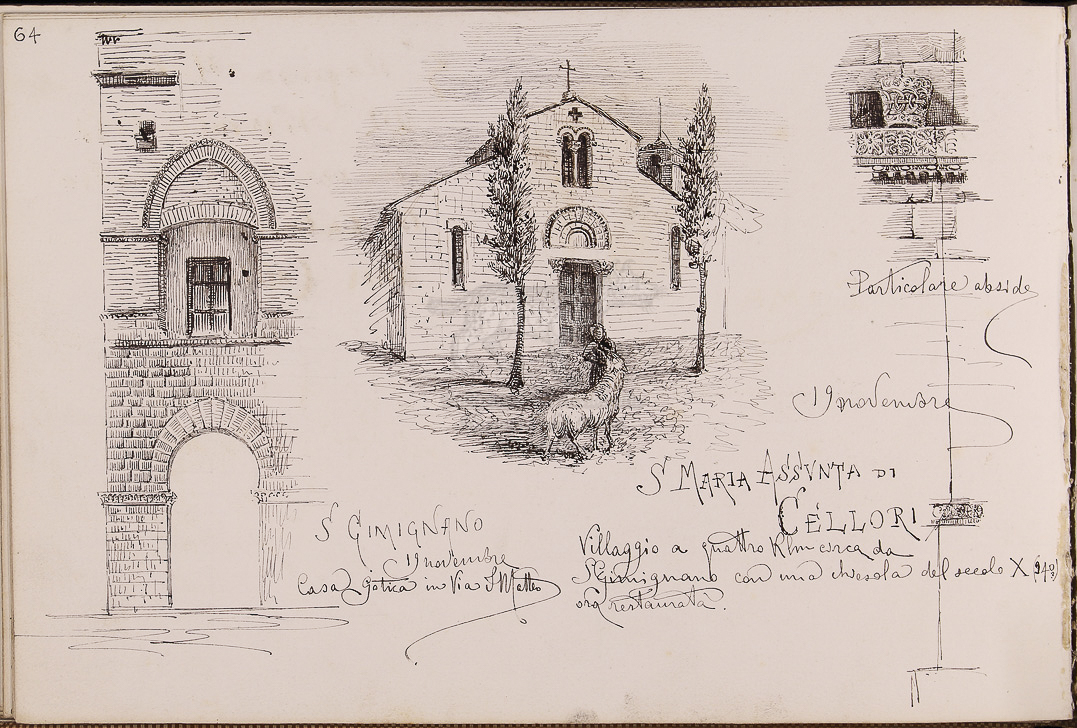 64
Particolare abside
19 novembre
S MARIA ASSVNTA DI
CELLORI
S GIMIGNANO
19 novembre
Casa gotica in Via S Matteo
Villaggio a quattro Klm circa da
S Gimignano con una chiesola del secolo X
ora restaurata.